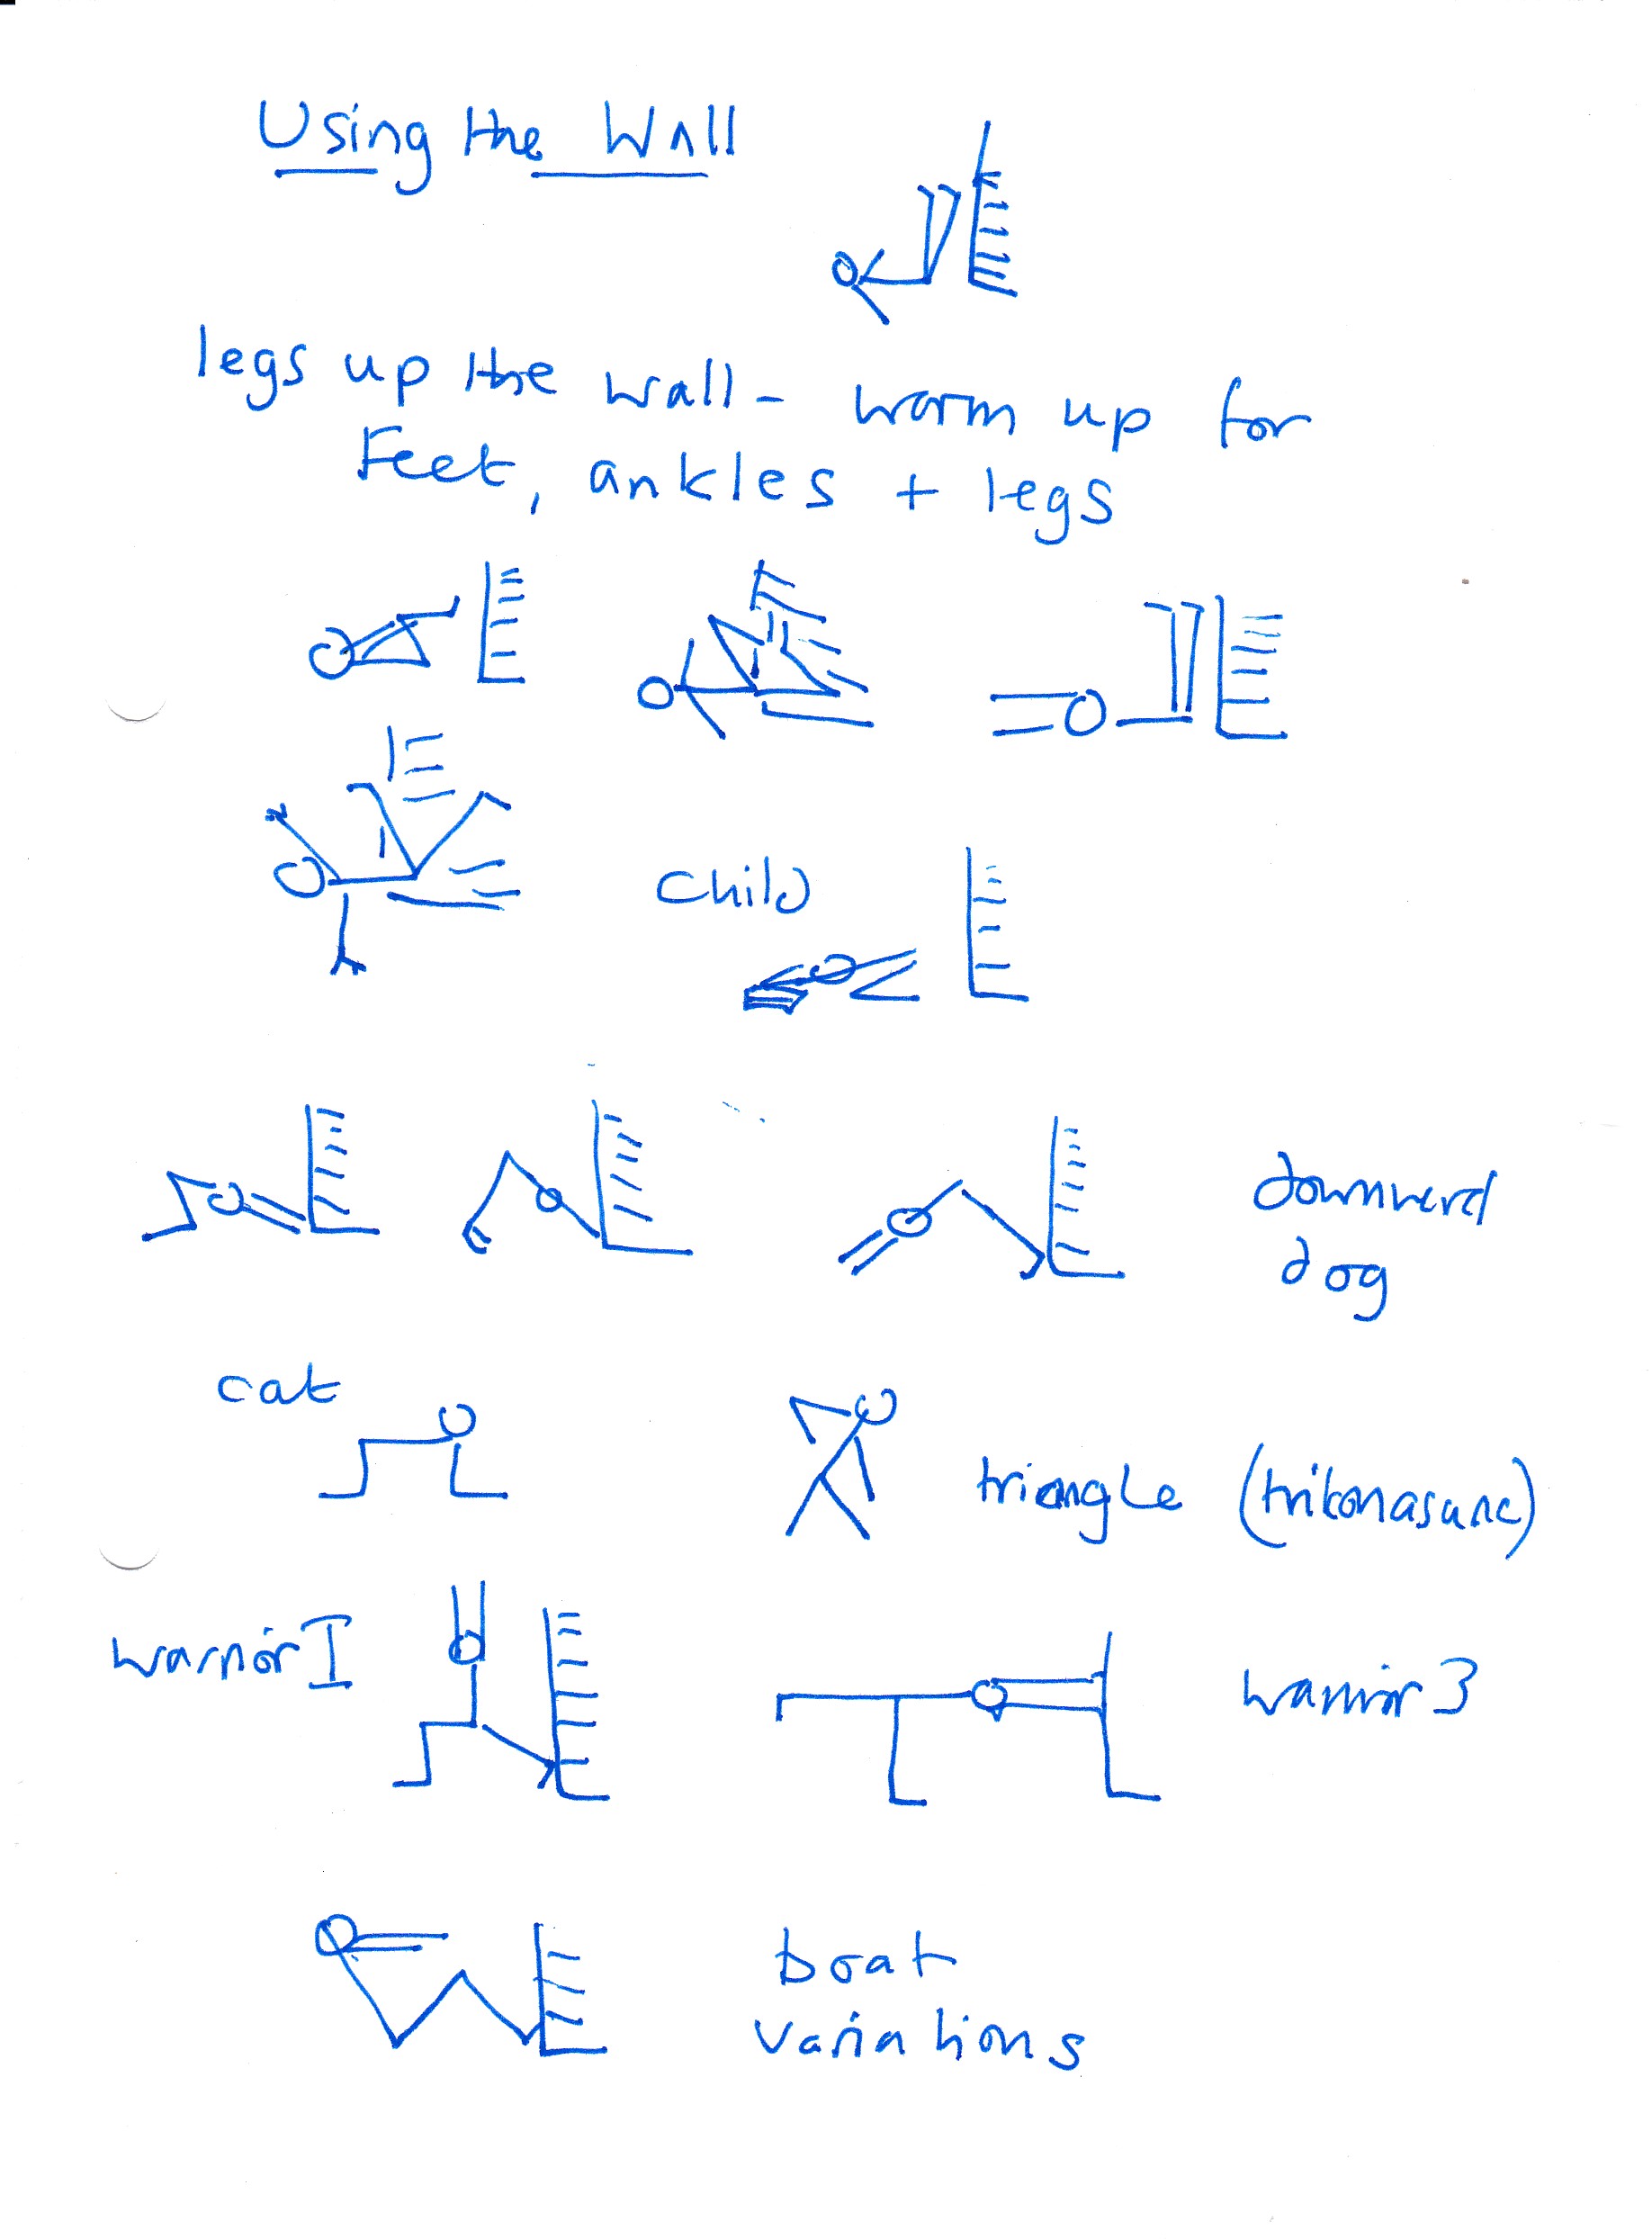 Using the Wall
legs up the wall - warm up for
Feet, ankles + legs
child
downward
dog
cat
triangle (trikonasana)
warrior I
warrior 3
boat
variations